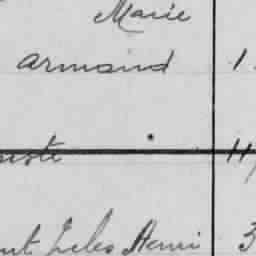 Marie
Armand 1
uste 11
Jules Henri 3